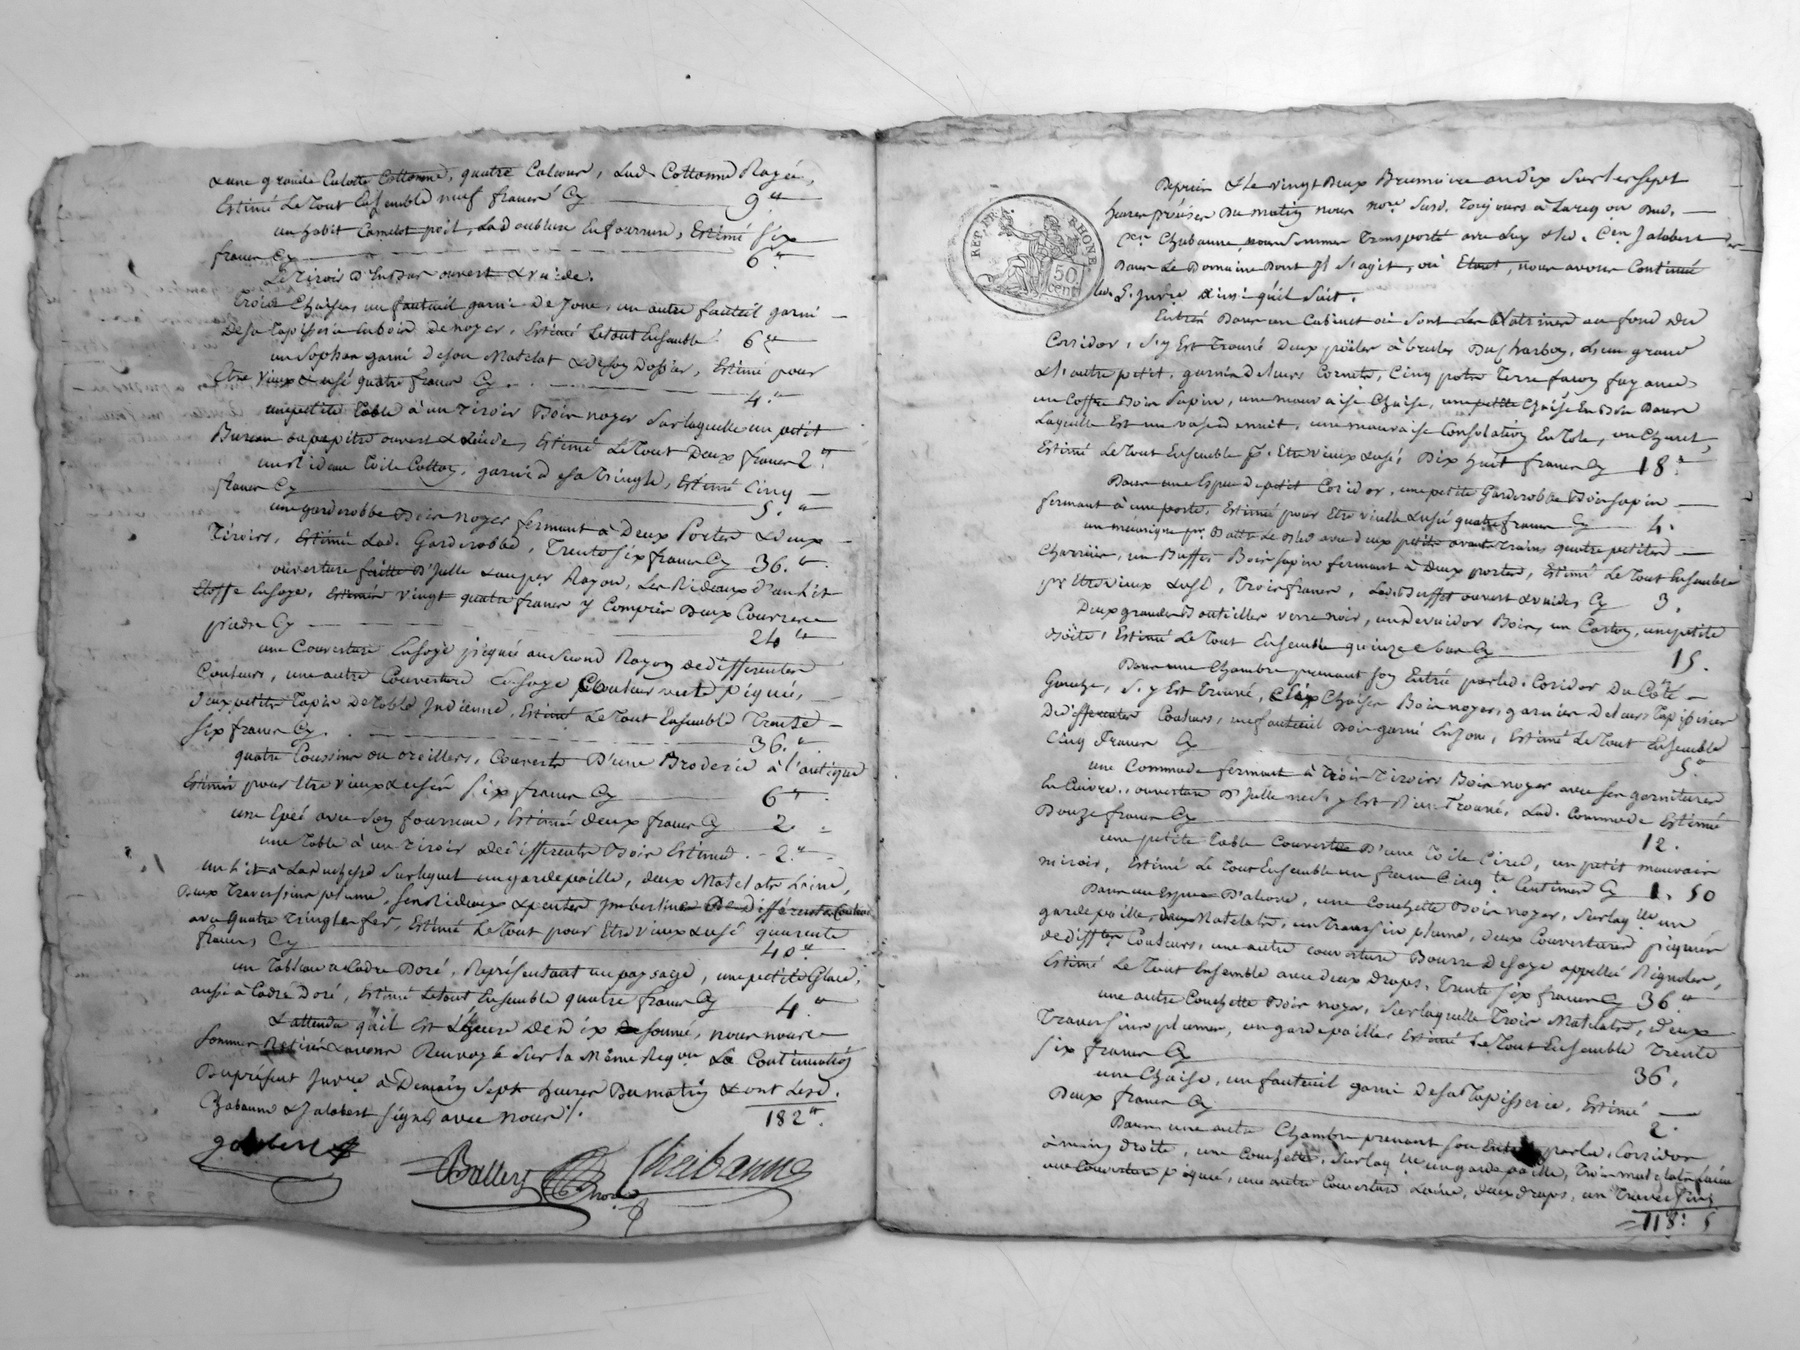 & une grande Culotte Cottonne, quatre Calecons, Lad. Cottonne Rayée,
Estimé Le Tout Ensemble neuf francs Cy 9"
un habit Camelot poil, La doublure En fourrure, Estimé six
francs Cy 6"
Le Tiroir d'En Bas ouvert & vuide.
Trois Chaises, un fauteuil garni De Jonc, un autre fauteuil garni
De sa Tapisserie En bois De noyer, Estimé Le tout Ensemble 6"
un Sophas garni De son Matelat & De son Dossier, Estimé pour
Etre vieux & usé quatre francs Cy 4"
une petite Table à un Tiroir Bois noyer Sur laquelle un petit
Bureau ou pepitre ouvert & vuide, Estimé Le Tout Deux francs 2"
un Rideau Toile Cotton, garni De sa Tringle, Estimé Cinq
francs Cy 5"
une garderobbe Bois noyer fermant à Deux Portes & Deux
Tiroirs, Estimé Lad. Garderobbe, Trente six francs Cy 36"
ouverture faitte D'Jcelle & au per Rayon, Les Rideaux d'un Lit
Etoffe En soye, Estimés vingt quatre francs y Compris Deux Courre
pieds Cy 24"
une Couverture En soye piquée au Second Rayon de differentes
Couleurs, une autre Couverture En soye Couleur verte piquée,
Deux petits Tapis De Table Indienne, Estimé Le Tout Ensemble Trente
Six francs Cy 36"
quatre Coussins ou oreillers, Couverts D'une Broderie à l'antique
Estimés pour Etre vieux & usés Six francs Cy 6"
une Epée avec Son fourreau, Estimée deux francs Cy 2
une Table à un Tiroir De differents Bois Estimée 2"
un Lit à La Duchesse Sur lequel un garde paille, deux Matelats Laine,
Deux Traversins plume, Ses Rideaux & pentes De différentes Couleurs
avec quatre Tringles fer, Estimé Le Tout pour Etre vieux & usé quarente
francs Cy 40"
un Tableau à Cadre Doré, Représentant un paysage, une petite Glace,
aussi à Cadre Doré, Estimé Le tout Ensemble quatre francs Cy 4"
& attendu qu'il Est L'heure De Dix Sonnée, nous nous
Sommes Retirés & avons Renvoyé Sur la Même Reqon La Continuation
Du présent Invre à Demain Sept heures Du matin & ont Lesd.
Chabanne & Jalabert Signé avec nous. 182"
Jalabert
Chabanne
Depuis & Le vingt Deux Brumaire an Dix Sur Les Sept
heures précises Du matin nous nore Susd. Toujours à La reqon Dud.
Cen Chabanne, nous Sommes Transporté avec Luy & Led. Cen Jalabert
Dans Le Domaine Dont Jl S'agit, où Etant, nous avons Continué
Led. Invre ainsi qu'il Suit.
RHONE
50
cent
Entrés Dans un Cabinet où Sont Les Latrines au fond Du
Corridor, S'y Est Trouvé Deux poëles à bruler Du Charbon, L'un grand
& L'autre petit, garnis De Leurs Cornets, Cinq pots Terre facon fayance
un Coffre Bois Sapin, une mauvaise Chaise, une petite Chaise En Bois Dans
Laquelle Est un vase de nuit, une mauvaise Consolation En Tole,
Estimé Le Tout Ensemble pr. Etre vieux & usé, Dix huit francs Cy 18"
Dans une Espece de petit Coridor, une petite Garderobbe Bois Sapin
fermant à une porte, Estimée pour Etre vieille & usée quatre francs Cy 4.
Charriers, un Buffet Bois Sapin fermant à Deux portes, Estimé Le Tout Ensemble
pr Etre vieux & usé, Trois francs, Led. Buffet ouvert & vuide, Cy 3.
Deux grandes Bouteilles verre noir, un Devuidor Bois, un Carton, une petite
Boëte, Estimé Le Tout Ensemble quinze Cy 15.
Dans une Chambre prenant Son Entrée par led. Coridor Du Côté
Gauche, S'y Est Trouvé, Six Chaises Bois noyer, garnies De Leurs Tapisseries
De differentes Couleurs, un fauteuil Bois garni En Jonc, Estimé Le Tout Ensemble
Cinq francs Cy 5"
une Commode fermant à Trois Tiroirs Bois noyer avec Ses garnitures
En Cuivre, ouverture D'Jcelle y Est Rien Trouvé, Lad. Commode Estimée
Douze francs Cy 12.
une petite Table Couverte D'une Toile Cirée, un petit mauvais
miroir, Estimé Le Tout Ensemble un franc Cinqte Centimes Cy 1. 50
Dans une Espece D'alcove, une Couchette Bois noyer, Sur laqlle un
garde paille, deux Matelats, un Traversin plume, Deux Couvertures piquées
De diffetes Couleurs, une autre couverture Bourre De Soye appellée
Estimé Le Tout Ensemble avec deux Draps, Trente Six francs Cy 36"
une autre Couchette Bois noyer, Sur laquelle Trois Matelats, Deux
Traversins plumes, un garde paille Estimé Le Tout Ensemble Trente
Six francs Cy 36.
une Chaise, un fauteuil garni De Sa Tapisserie, Estimé
Deux francs Cy 2.
Dans une autre Chambre prenant Son Entrée par le Corridor
à main droite, une Couchette, Sur laqlle un garde paille, Trois matelats Laine
une Couverture piquée, une autre Couverture Laine, deux draps, un Traversin
118: 5